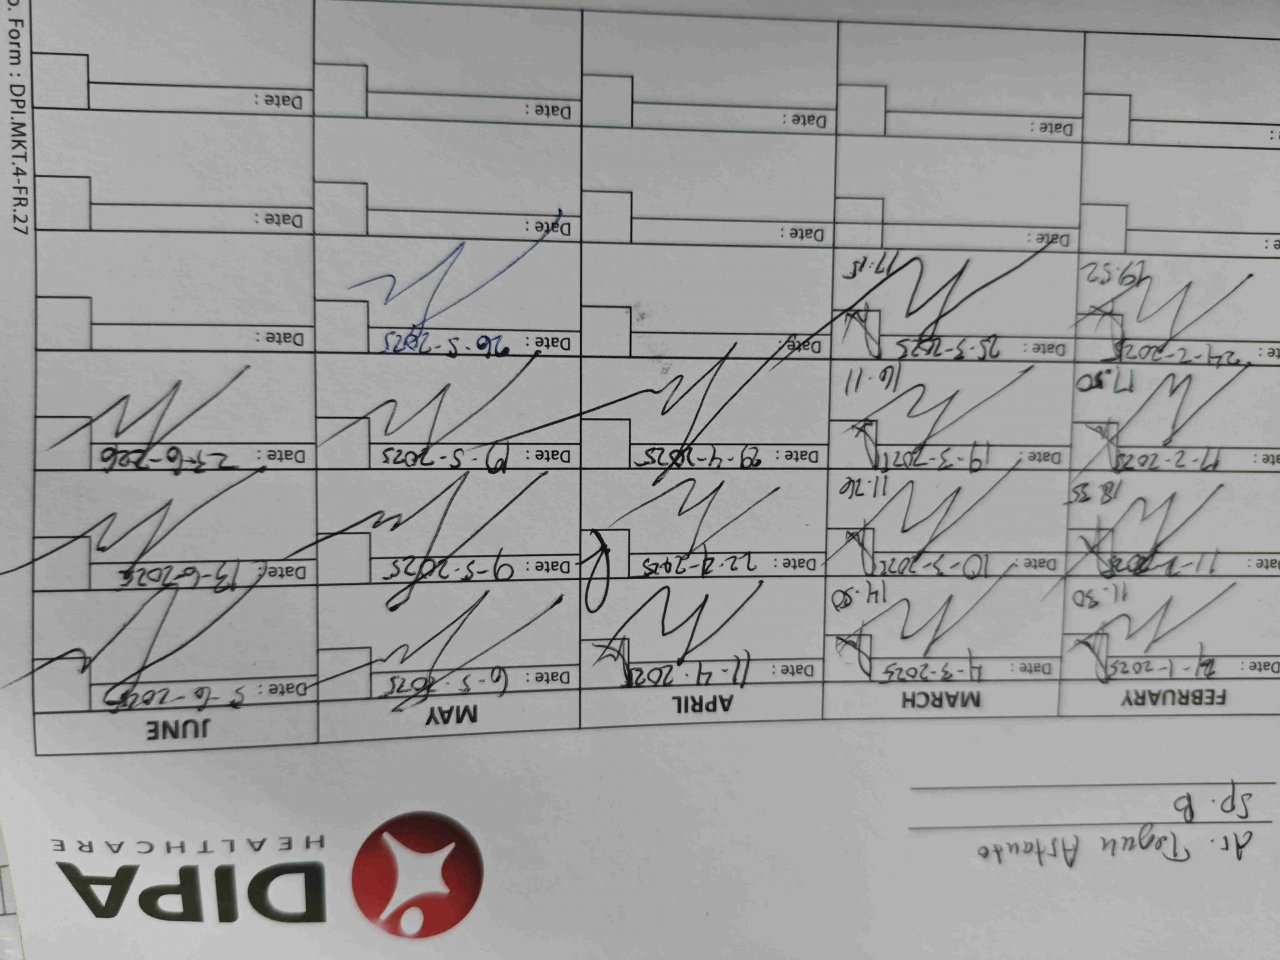 DIPA
HEALTHCARE
dr. Teguh
Sp. B
FEBRUARY MARCH APRIL MAY JUNE
Date : Date : 4-3-2025 Date : 11-4-202 Date : 6-5-2025 Date : 5-6-2025
11.30 14.50
Date : 11-2-2025 Date : 10-3-2025 Date : 22-4-2025 Date : 9-5-2025 Date : 13-6-2025
18.35 11.26
Date : 17-2-2025 Date : 19-3-2025 Date : 29-4-2025 Date : 19-5-2025 Date :
17.50 16.11
Date : 24-2-2025 Date : 25-3-2025 Date : Date : 26-5-2025 Date :
19.52 17.15
Date : Date : Date : Date :
Date : Date : Date : Date :
o. Form : DPI.MKT.4-FR.27